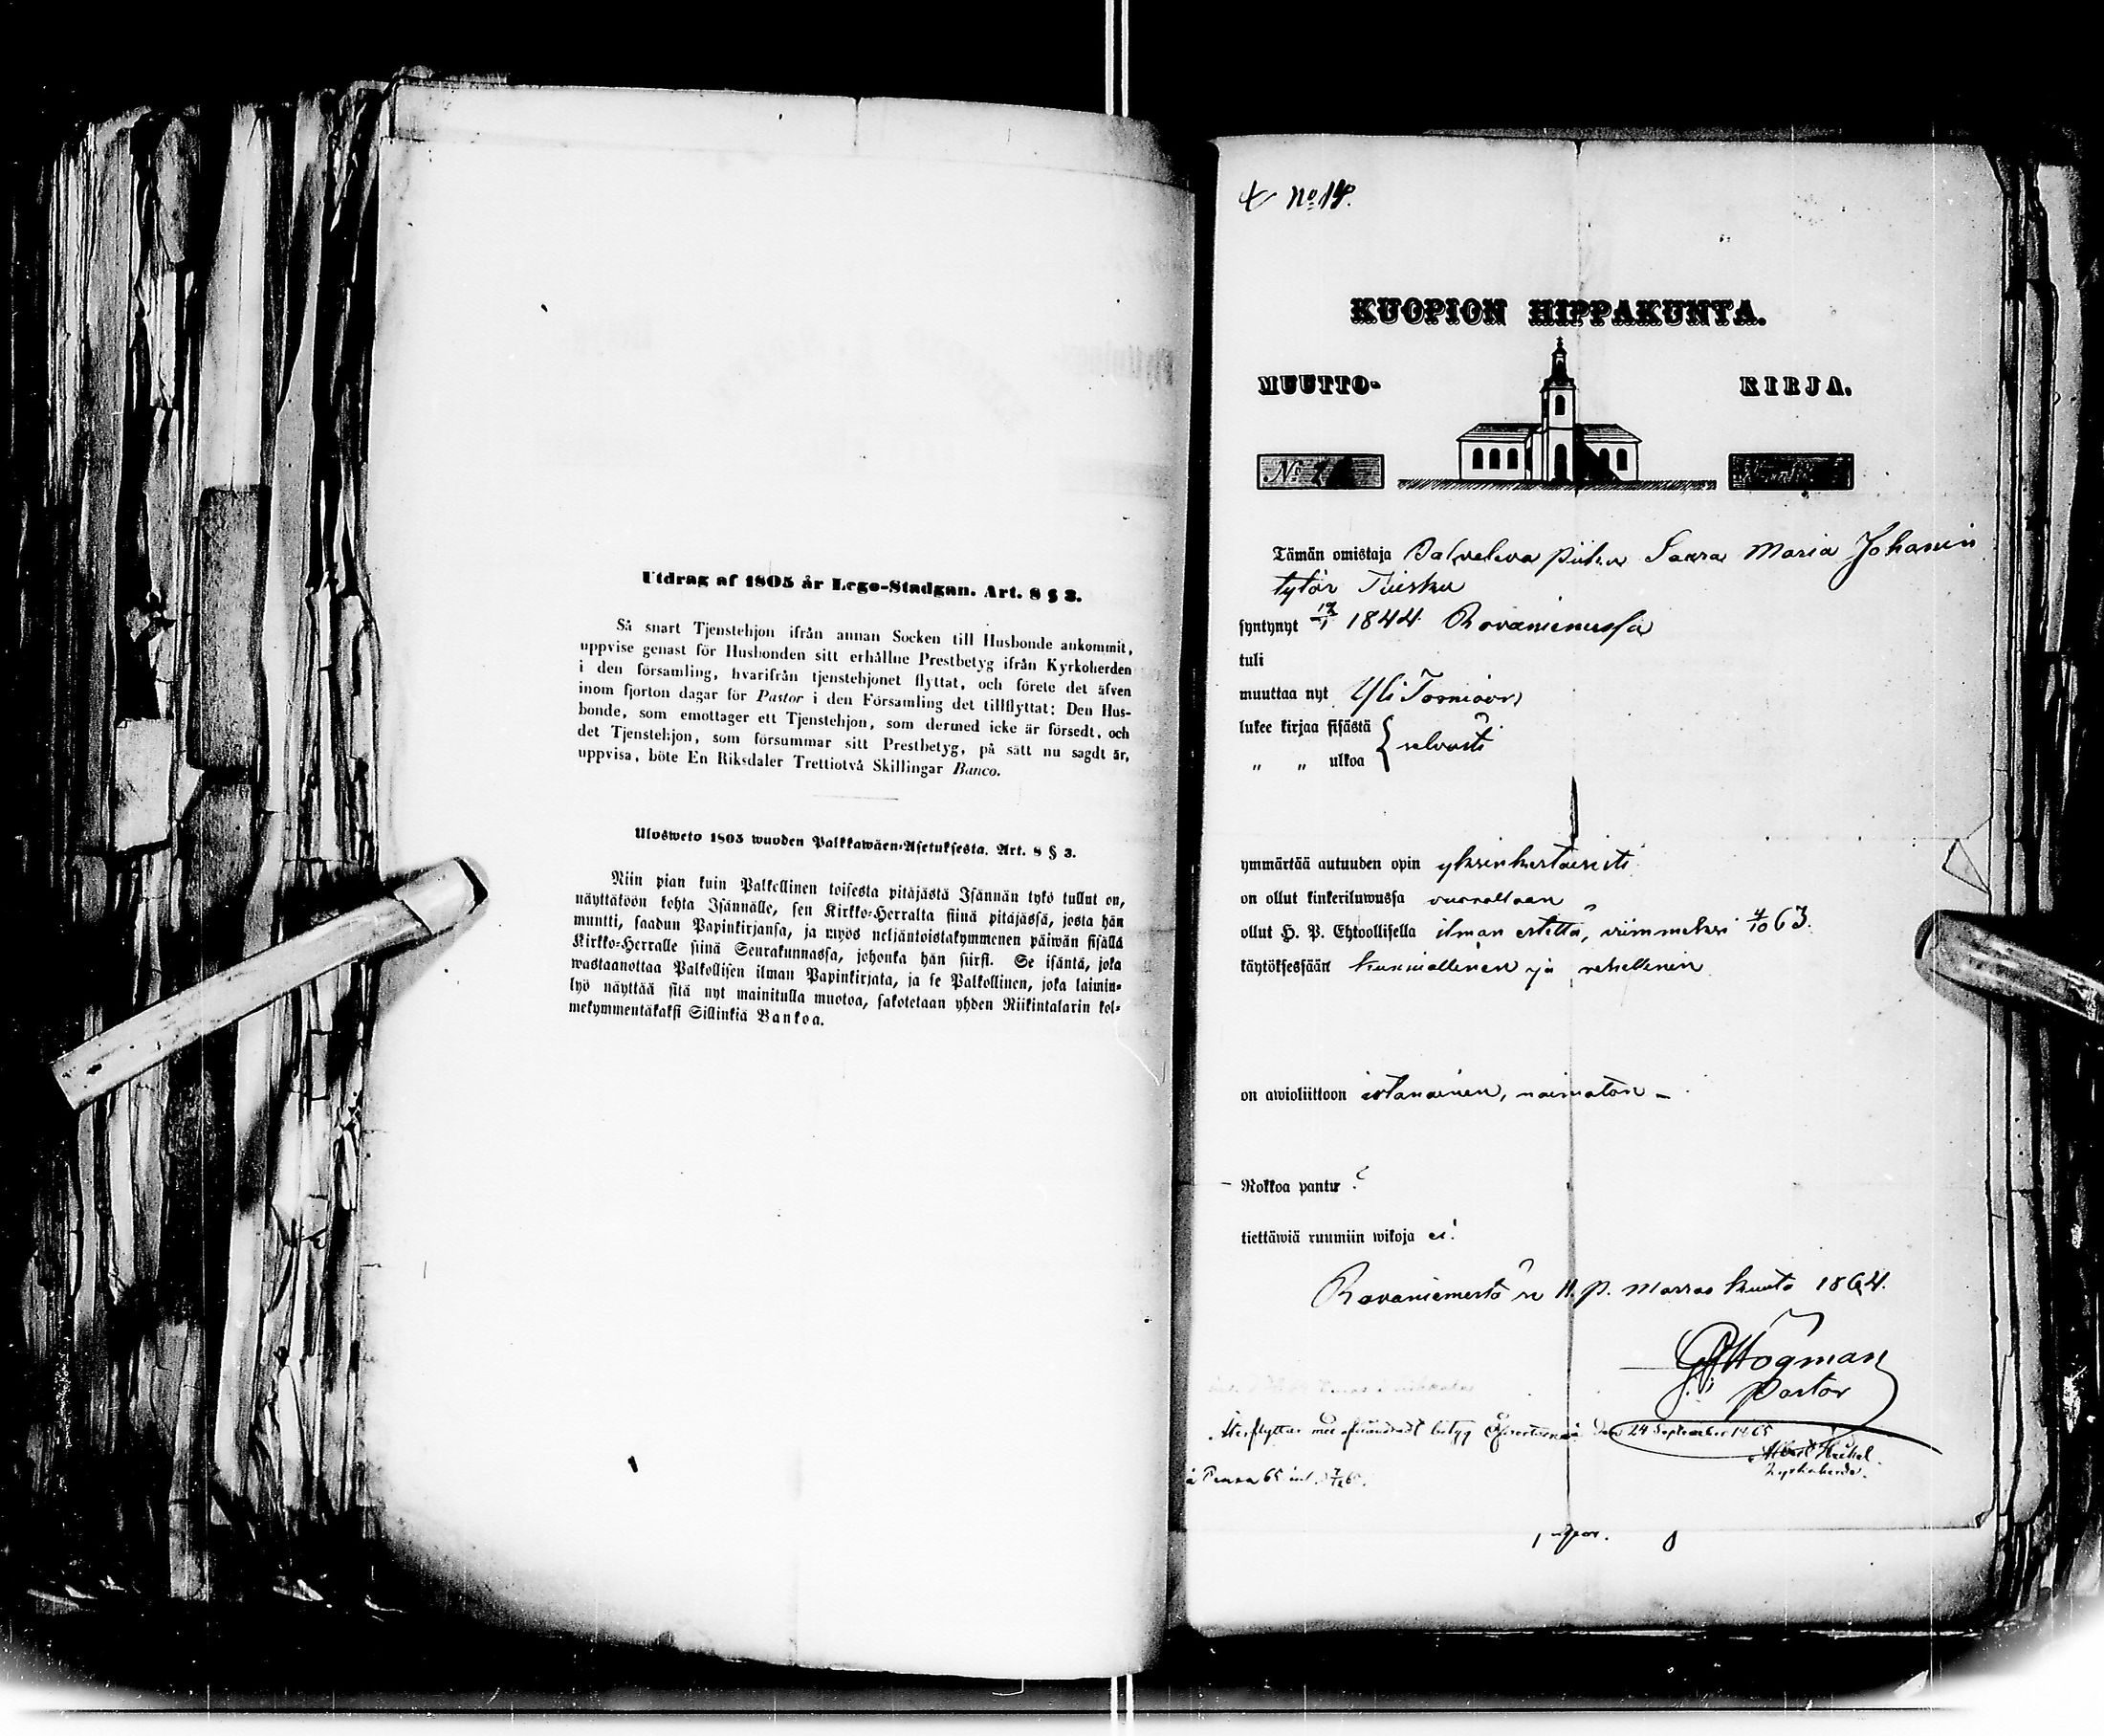 Utdrag af 1805 år Lego-Stadgan. Art. 8 § 3.
Så snart Tjenstehjon ifrån annan Socken till Husbonde ankommit,
uppvise genast för Husbonden sitt erhållne Prestbetyg ifrån Kyrkoherden
i den församling, hvarifrån tjenstehjonet flyttat, och förete det äfven
inom fjorton dagar för Pastor i den Församling det tillflyttat: Den Hus-
bonde, som emottager ett Tjenstehjon, som dermed icke är försedt, och
det Tjenstehjon, som försummar sitt Prestbetyg, på sätt nu sagdt är,
uppvisa, böte En Riksdaler Trettiotvå Skillingar Banco.
Ulosweto 1805 wuoden Palkkawäen-Asetuksesta. Art. 8 § 3.
Niin pian kuin Palkollinen toisesta pitäjästä Isännän tykö tullut on,
näyttäköön kohta Isännälle, sen Kirkko-Herralta siinä pitäjässä, josta hän
muutti, saadun Papinkirjansa, ja myös neljäntoistakymmenen päiwän sisällä
Kirkko-Herralle siinä Seurakunnassa, johonka hän siirsi. Se isäntä, joka
wastaanottaa Palkollisen ilman Papinkirjata, ja se Palkollinen, joka laimin-
lyö näyttää sitä nyt mainitulla muotoa, sakotetaan yhden Riikintalarin kol-
mekymmentäkaksi Sillinkiä Bankoa.
No 14.
KUOPION HIPPAKUNTA.
MUUTTO- KIRJA.
No
Tämän omistaja Palveleva piika Saara Maria Johanin
tytär Tuisku
syntynyt 1844 Rovaniemessä
tuli
muuttaa nyt Yli Tornioon
lukee kirjaa sisästä
" " ulkoa } selvästi
ymmärtää autuuden opin yksinkertaisesti
on ollut kinkeriluwussa vuorollaan
ollut H. P. Ehtoollisella ilman estettä, viimmeksi 4/10 63.
käytöksessään kunniallinen ja rehellinen
on awioliittoon estanainen, naimaton –
Rokkoa pantu ?
tiettäwiä ruumiin wikoja ei.
Rovaniemestä se 11. p. Marras kuuta 1864.
Högman
Pastor
Återflyttar med oförändradt betyg den 24 September 1865
Albert Heikel
Kyrkoherde.